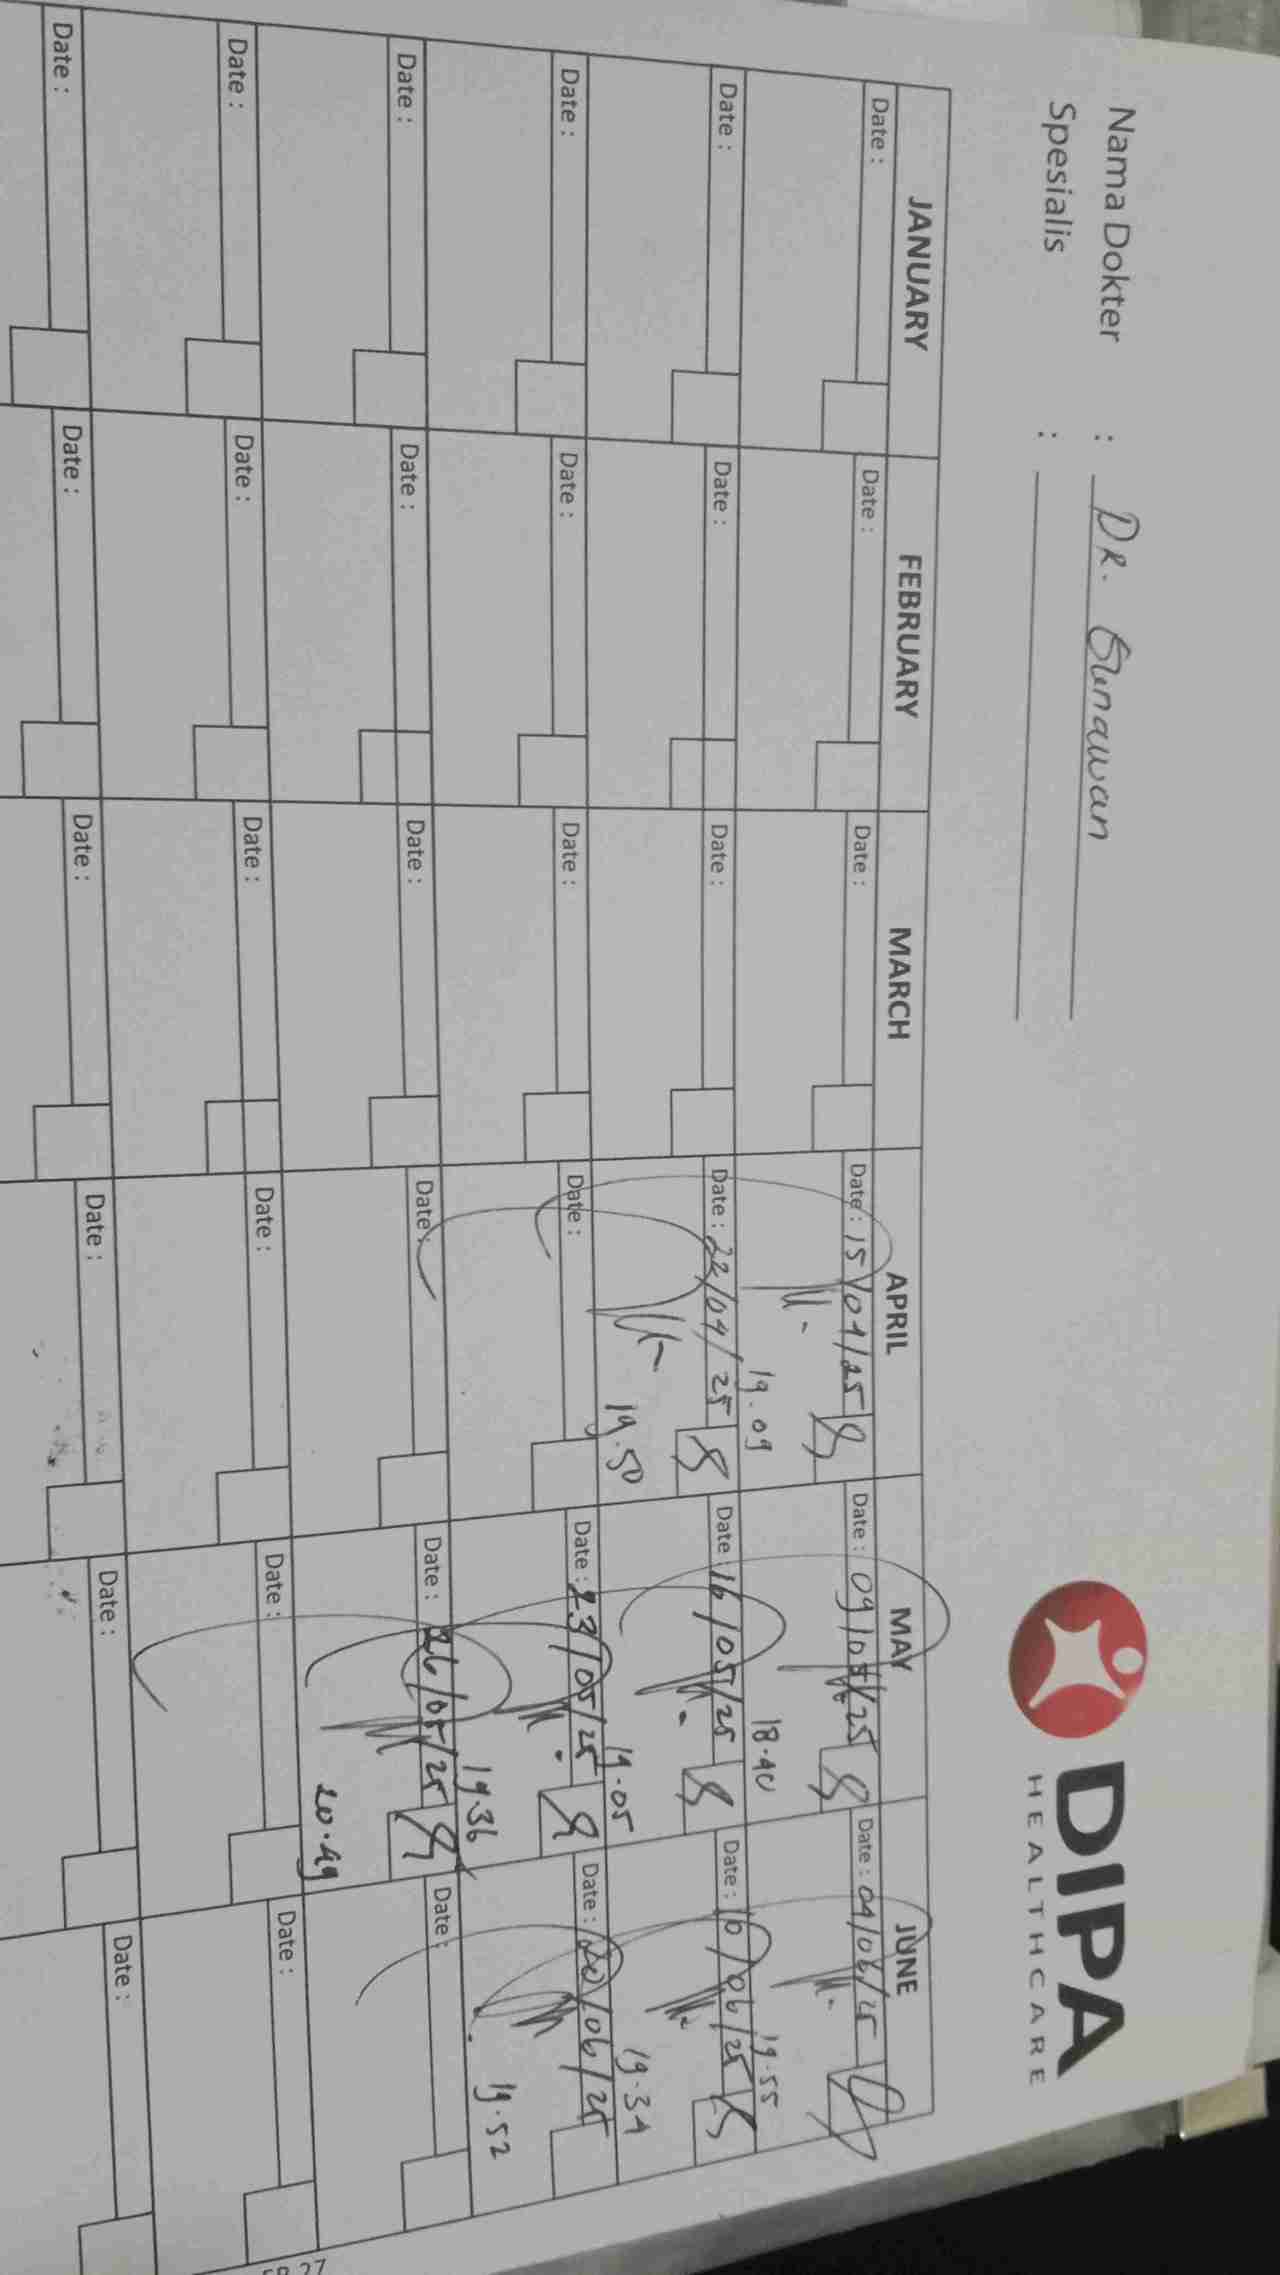 DIPA
HEALTHCARE
Nama Dokter : DR. Gunawan
Spesialis :
JANUARY FEBRUARY MARCH APRIL MAY JUNE
Date : Date : Date : Date : 15/04/25 Date : 09/05/25 Date : 04/06/25
19.09 18.40 19.55
Date : Date : Date : Date : 22/04/25 Date : 16/05/25 Date : 10/06/25
19.50 19.05 19.34
Date : Date : Date : Date : Date : 23/05/25 Date : 20/06/25
19.36 19.52
Date : Date : Date : Date : Date : 26/05/25 Date :
20.49
Date : Date : Date : Date : Date : Date :
Date : Date : Date : Date : Date : Date :